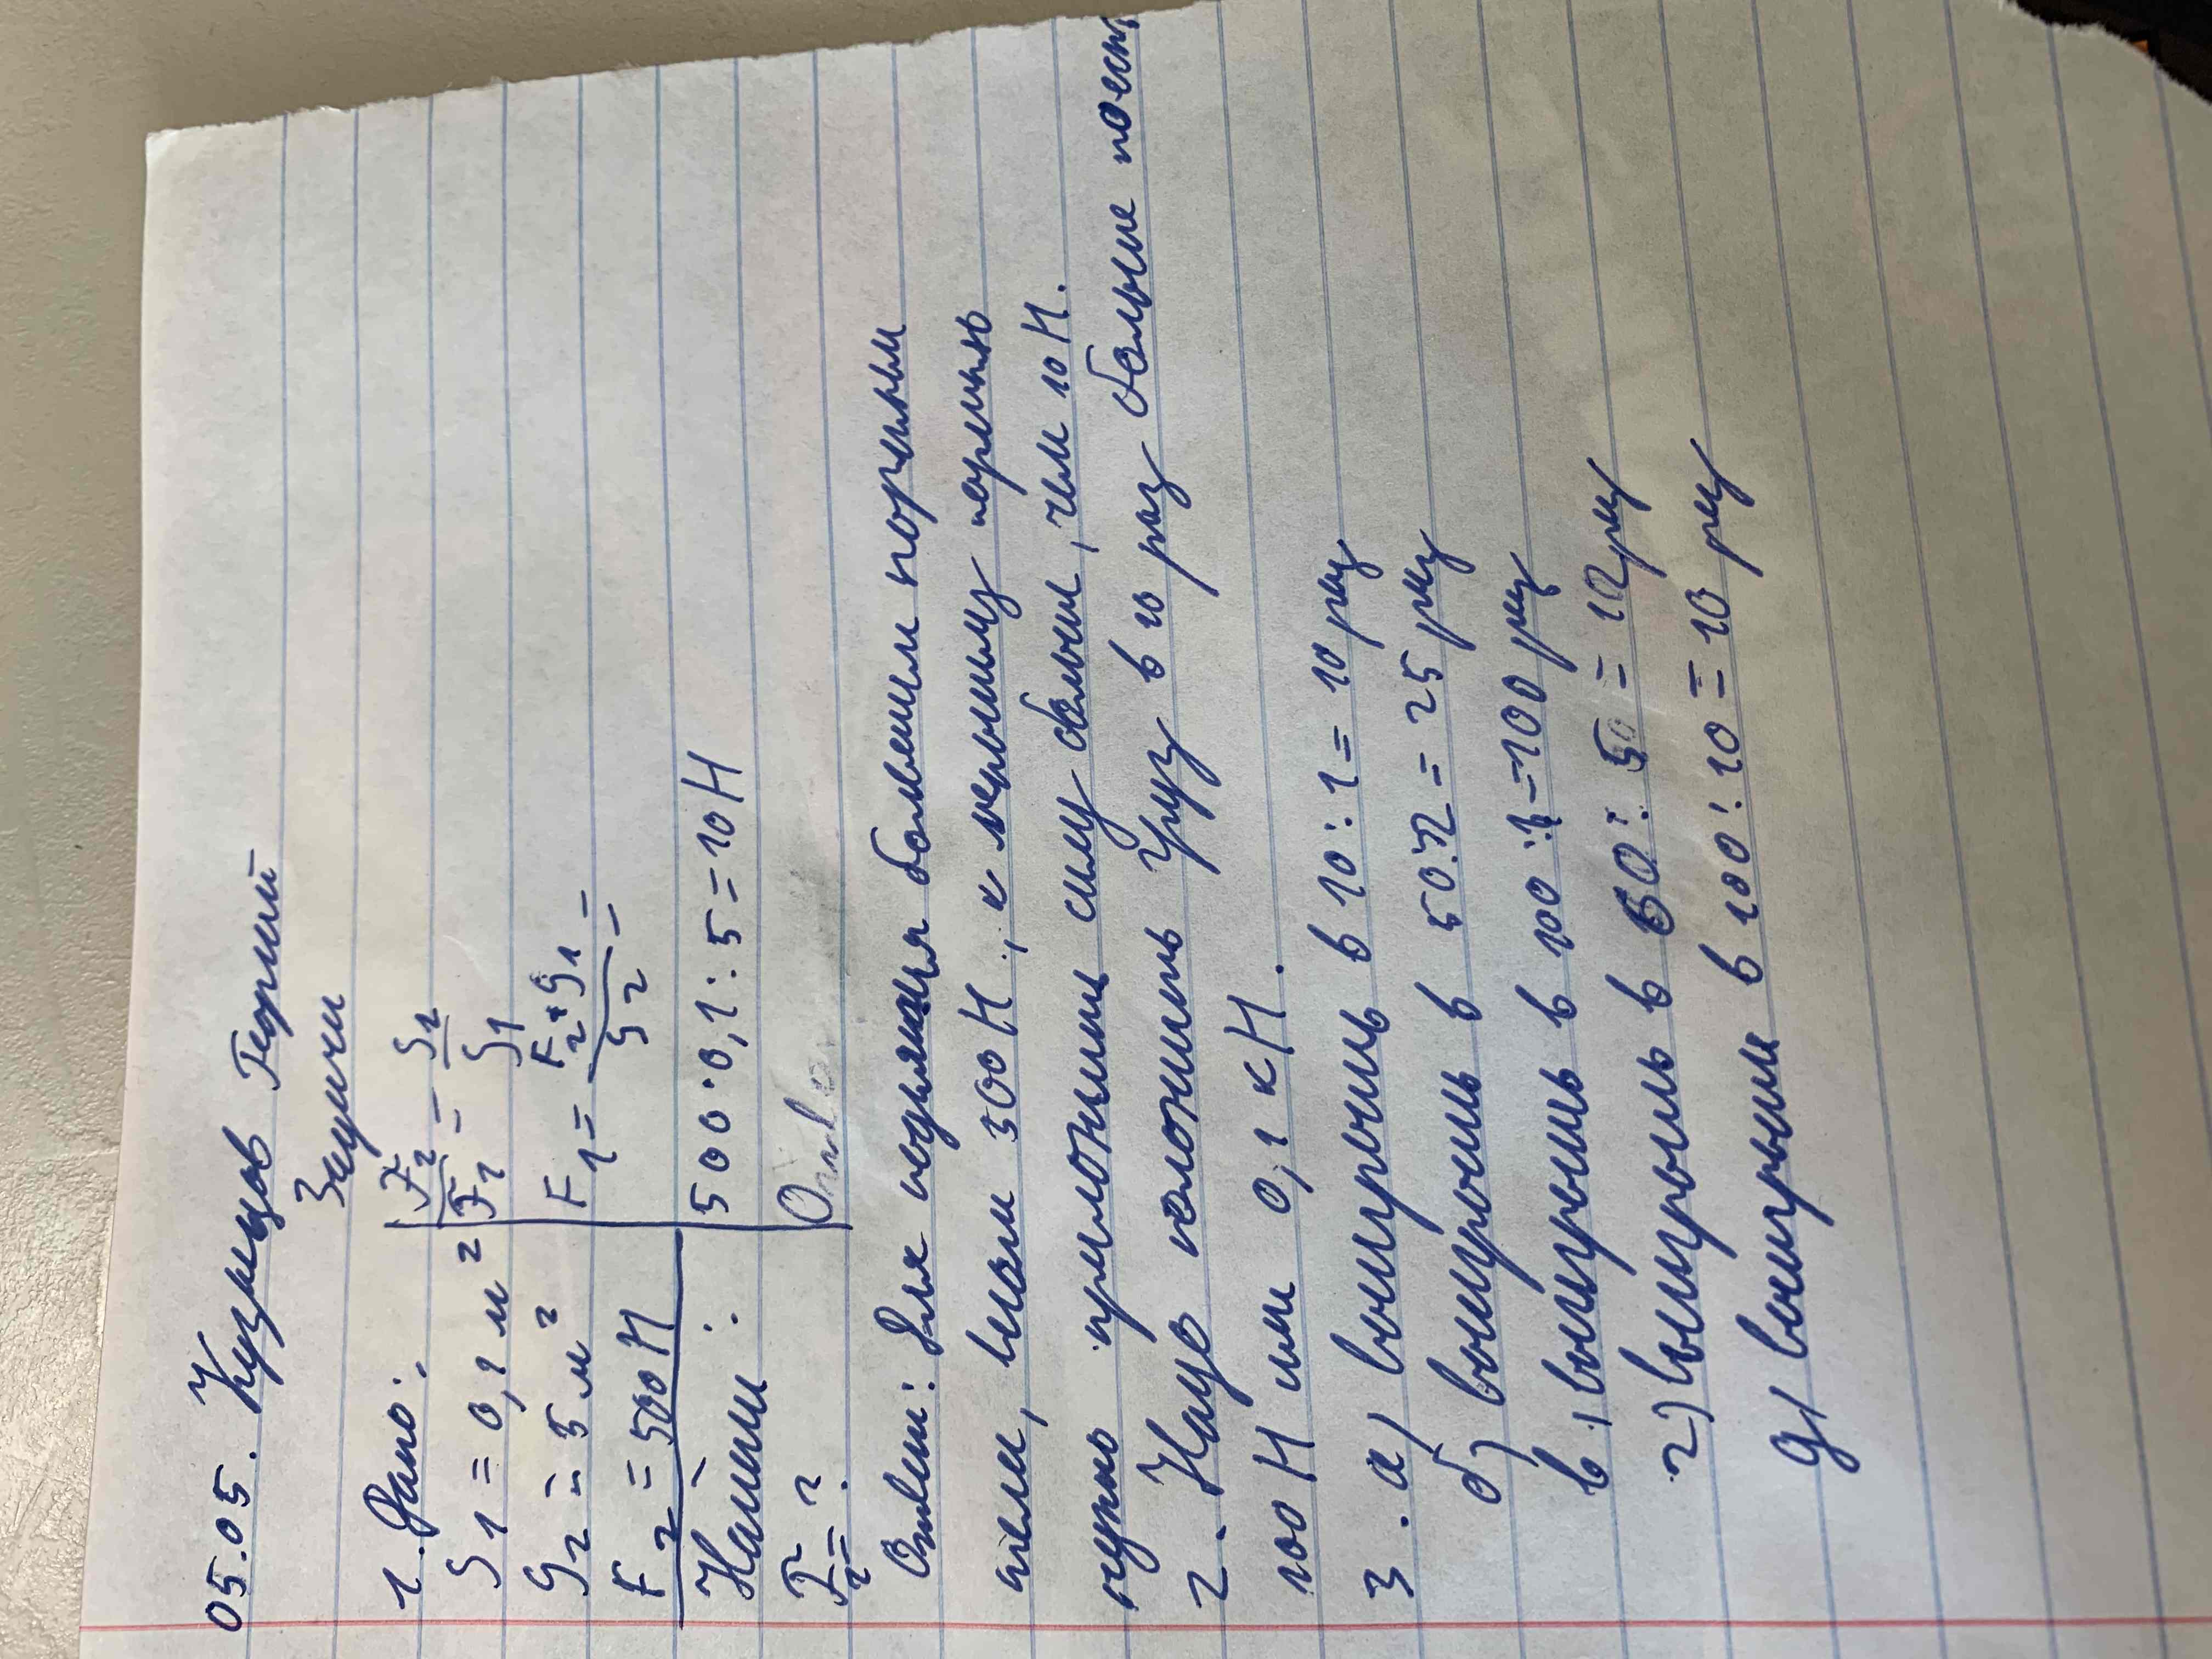 05.05. Кузнецов Георгий
Задачи
1. Дано:
S1 = 0,1 м²
S2 = 5 м²
F2 = 500 Н
Найти:
F1 = ?
F2/F1 = S2/S1
F1 = F2*S1/S2 =
500·0,1:5=10Н
Ответ: Для поднятия большем поршнем
тела, весом 500 Н, к меньшему поршню
нужно приложить силу больше, чем 10 Н.
2. Надо положить груз в 10 раз больше
100 Н или 0,1 кН.
3. а) выигрыш в 10:1=10 раз
б) выигрыш в 50:2=25 раз
в) выигрыш в 100:1=100 раз
г) выигрыш в 60:5=12 раз
д) выигрыш в 100:10=10 раз